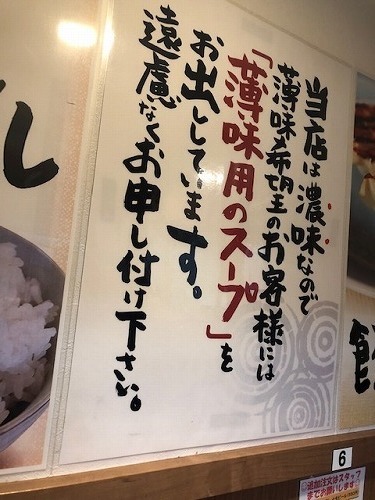 当店は濃味なので
薄味希望のお客様には
「薄味用のスープ」を
お出ししています。
遠慮なくお申し付け下さい。
6
追加注文はスタッフ
までお願いします